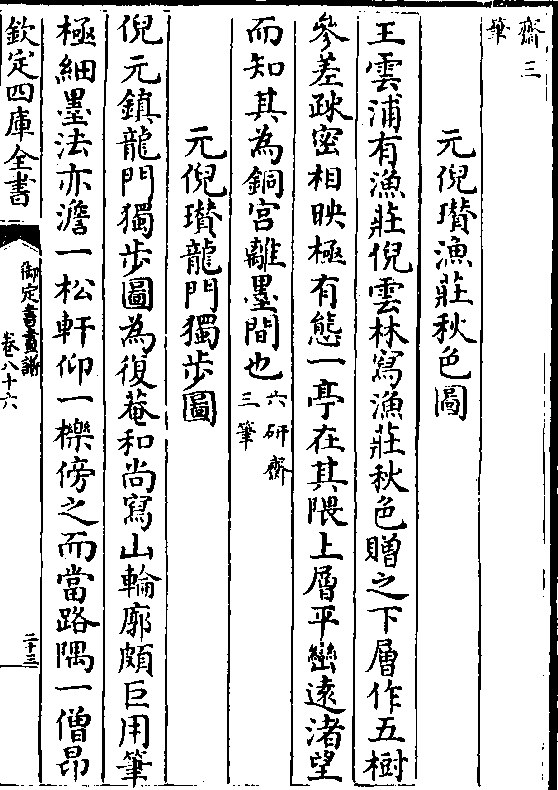 齋三
筆
元倪瓚漁莊秋色圖
王雲浦有漁莊倪雲林寫漁莊秋色贈之下層作五樹
參差疎密相映極有態一亭在其隈上層平巒遠渚望
而知其為銅宫離墨間也六研齋
三筆
元倪瓚龍門獨步圖
倪元鎮龍門獨步圖為復菴和尚寫山輪廓頗巨用筆
極細墨法亦澹一松軒仰一櫟傍之而當路隅一僧昂
欽定四庫全書
御定書畫譜
卷八十六
二十三